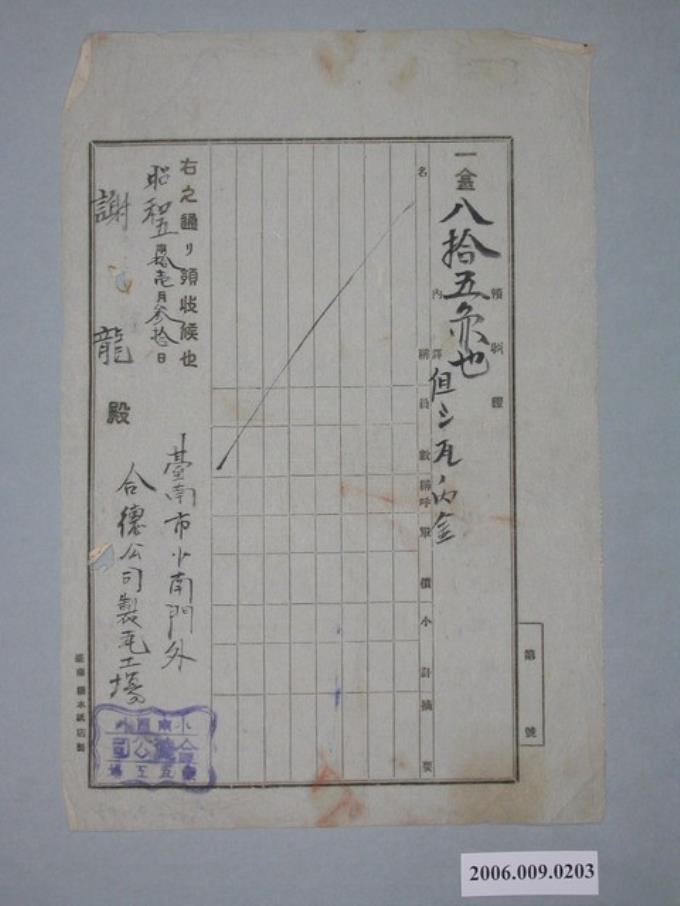 領收證
一金八拾五
也
但シ瓦ノ內金
內譯
名稱 員數 稱呼 單價 小計 摘要
右之通リ領收候也
昭和五年拾壱月參拾日
臺南市小南門外
合德公司製瓦工場
謝龍殿
小南門外
合德公司
製瓦工場
第 號
2006.009.0203